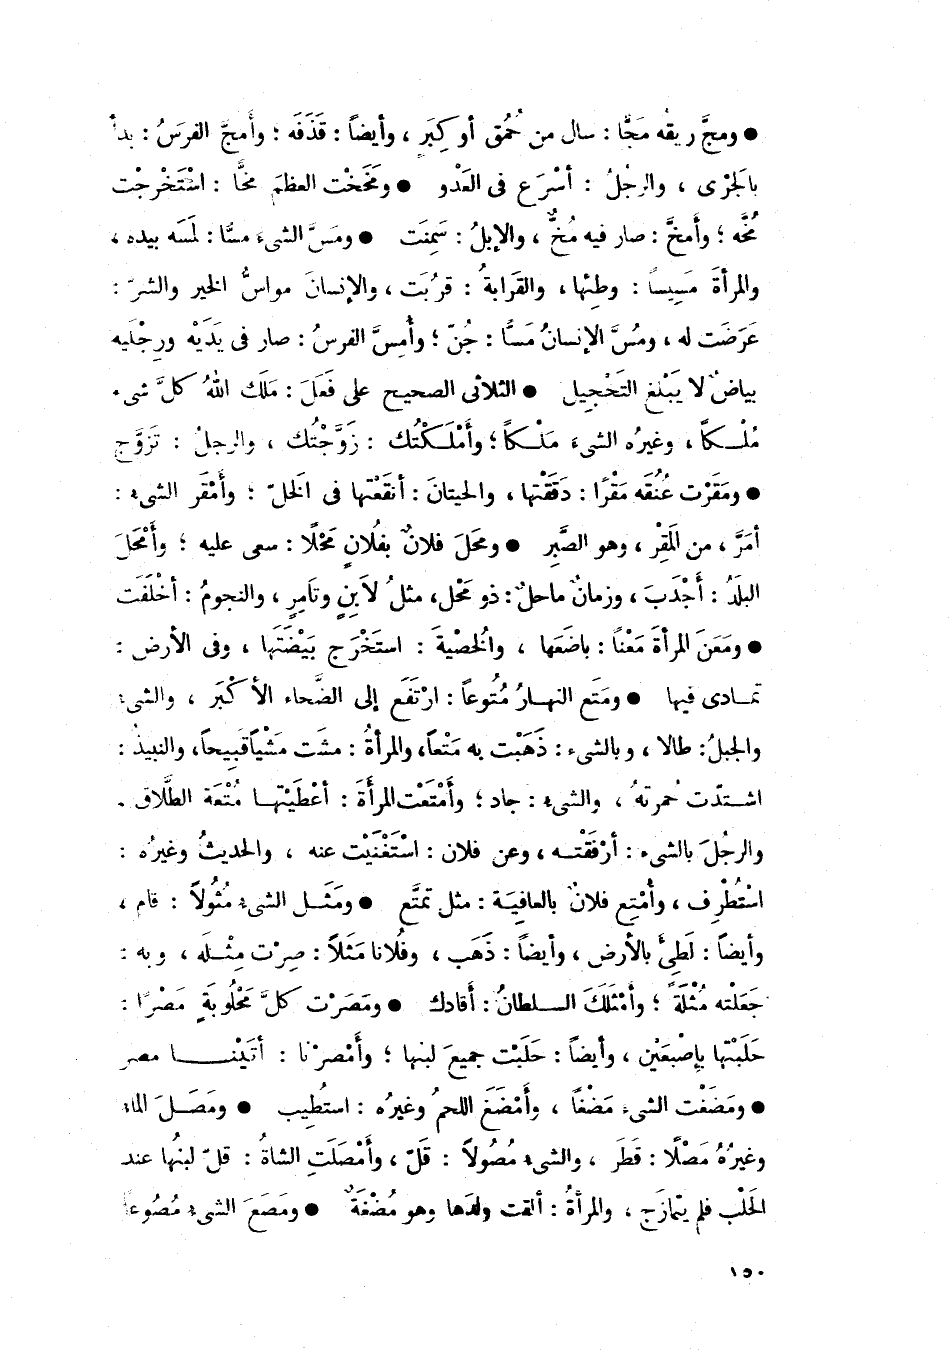 ● ومجَّ ريقَه مَجًّا : سال من حُمُق أو كِبَر ، وأيضاً : قَذَفَه ؛ وأمجَّ الفرَسُ : بدأ
بالَجرْى ، والرجُلُ : أسْرَع فى العَدْو ● ومَخَخْت العظمَ مخًّا : اسْتَخْرجْت
مُخَّه ؛ وأمخَّ : صار فيه مُخٌّ ، والإبلُ : سَمِنَت ● ومَسَّ الشىءَ مسًّا : لمَسَه بيده ،
والمرأةَ مَسِيساً : وطِئها ، والقَرابةُ : قرُبَت ، والإنسانَ مواسُّ الخير والشرّ :
عَرَضَت له ، ومُسَّ الإنسانُ مَسًّا : جُنّ ؛ وأُمِسَّ الفرسُ : صار فى يَدَيْه ورِجْليه
بياضٌ لا يَبْلغ التَحْجيل ● الثلاثى الصحيح على فَعَلَ : مَلَك اللهُ كلَّ شىء
مُلْـكاً ، وغيرُه الشىءَ مَلْـكاً ؛ وأَمْلَـكْتُك : زَوَّجْتُك ، والرجلُ : تَزَوَّج
● ومَقَرْت عُنُقَه مَقْرًا : دَقَقْتها ، والحيتانَ : أنقَعْتها فى الَخلّ ؛ وأمْقَر الشىء :
أمَرَّ ، من المَقِرْ ، وهو الصَّبِر ● ومحَلَ فلانٌ بفُلانٍ مَحْلًا : سعى عليه ؛ وأَمْحَلَ
البلَدُ : أَجْدَبَ ، وزمانٌ ماحلٌ : ذو مَحْل، مثلُ لاَبِنٍ وتَامِرٍ ، والنجومُ : أخْلَفَت
● ومَعَنَ المرأةَ مَعْنًا : باضَعَها ، والُخصْيةَ : استَخْرَج بَيْضَتَها ، وفى الأرض :
تمـادى فيها ● ومَتَع النهـارُ مُتُوعاً : ارْتَفَع إلى الضَّحاء الأكْبَر ، والشىءُ
والجبلُ : طالا ، وبالشىء : ذَهَبْت به مَتْعاً، والمرأةُ : مشَت مَشْياً قَبيحاً، والنبيذُ :
اشـتدّت حُمرتهُ ، والشىء : جاد ؛ وأَمْتَعْت المرأَةَ : أعْطَيْتهـا مُتْعَة الطَّلاق .
والرجُلَ بالشىء : أرْفَقْتـه ، وعن فلان : اسْتَغْنَيْت عنه ، والحديثُ وغيرُه :
اسْتُطْرِف ، وأُمْتِع فلانٌ بالعافِيَة : مثل تمتَّع ● ومَثَـل الشىء مُثُولاً : قام ،
وأيضاً : لَطِئَ بالأرض ، وأيضاً : ذَهَب ، وفُلانا مَثَلاً : صِرْت مِثْـلَه ، وبه :
جَعَلْته مُثْلَةً ؛ وأمْثَلَكَ السـلطانُ : أقادك ● ومَصَرْت كلَّ مَحْلُوبَةٍ مَصْرًا :
حَلَبْتها بإصْبَعَيْن ، وأيضاً : حَلَبْت جميعَ لبنها ؛ وأَمْصرْنا : أتَيْنــا مصر
● ومَضَغْت الشىءَ مَضْغاً ، وأَمْضَغَ اللحمُ وغيرُه : استُطِيب ● ومَصَـلَ الماءُ
وغيرُهُ مَصْلًا : قَطَرَ ، والشىء مُصُولاً : قَلّ ، وأَمْصَلَتِ الشاةُ : قلّ لبنُها عند
الَحلْب فلم يَمْازَج ، والمرأةُ : ألقت ولدَها وهو مُضْغَةٌ ● ومَصَعَ الشىء مُصُوعاً
١٥٠